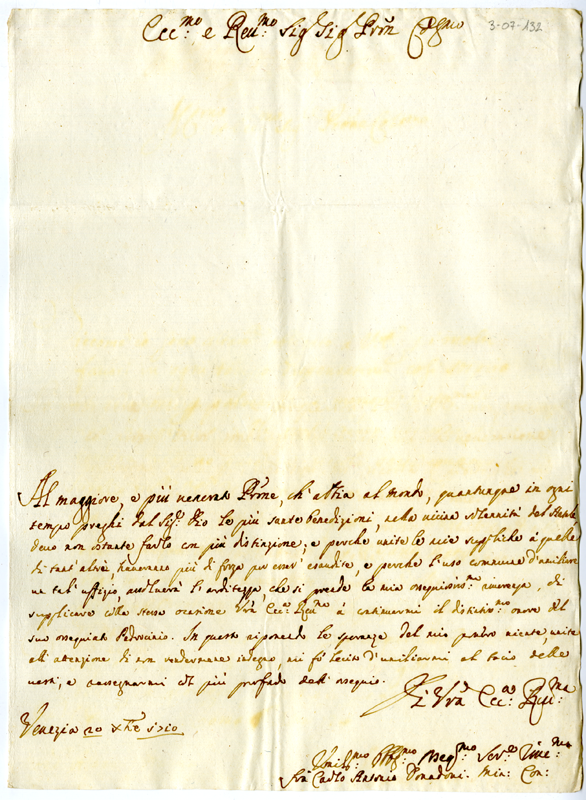 Ecc:mo e Reu:mo Sig.r Sig.r Prõn Colẽmo
3-07-132
Al maggiore, e più venerato Prõne, ch'abbia al mondo, quantunque in ogni
tempo preghi dal Sig.r Dio le più sante benedizioni, nella vicina solennità del Natale
devo non ostante farlo con più distinzione; e perche unite le mie suppliche à quelle
di tant'altri, haveranno più di forza per esser' esaudite, e perche l'uso comune d'
ne tal' uffizio, l'arditezza, che si prende la mia osequiosis:ma, di
supplicare colla stessa occasione Vrã Ecc:a Reu:ma à continuarmi il distintis:mo onore del
suo ossequiato Padrocinio. In questo riponendo le speranze del mio niente, unite
all'attenzione di non rendermene indegno, mi fò lecito d'umiliarmi al bacio delle
vesti, e rassegnarmi col più profondo dell'ossequio.
Di Vrã Ecc:a Reu:ma
Venezia 20 Xbre 1710
Umilis:mo Obseq:mo Ser:e
Frà Carlo Antonio Donadoni. Min: Con: